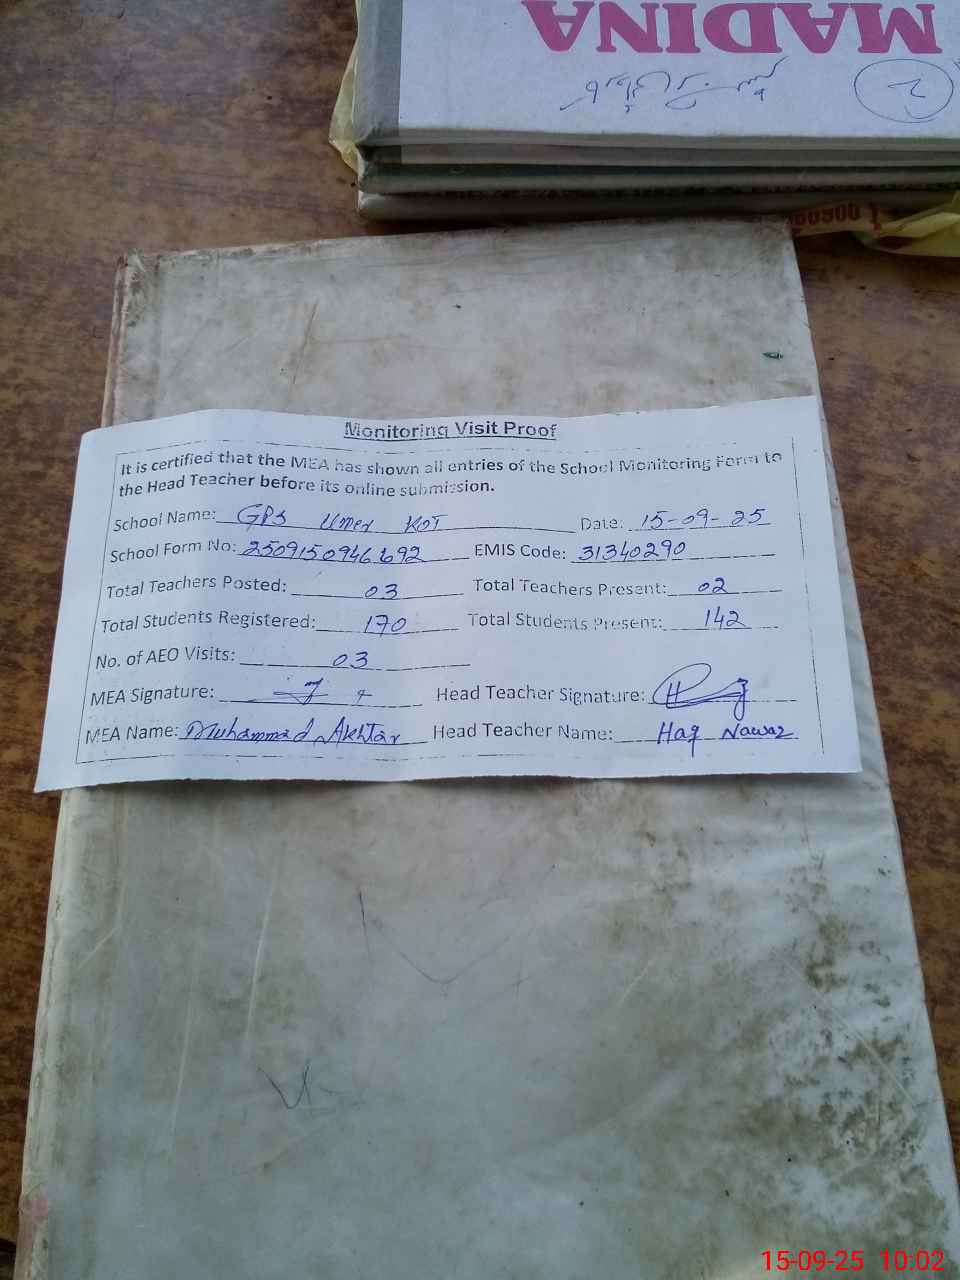 MADINA
Monitoring Visit Proof
It is certified that the MEA has shown all entries of the School Monitoring Form to
the Head Teacher before its online submission.
School Name: GPS Umer KOT Date: 15-09-25
School Form No: 2509150946692 EMIS Code: 31340290
Total Teachers Posted: 03 Total Teachers Present: 02
Total Students Registered: 170 Total Students Present: 142
No. of AEO Visits: 03
MEA Signature: Head Teacher Signature:
MEA Name: Muhammad Akhtar Head Teacher Name: Haq Nawaz
15-09-25 10:02